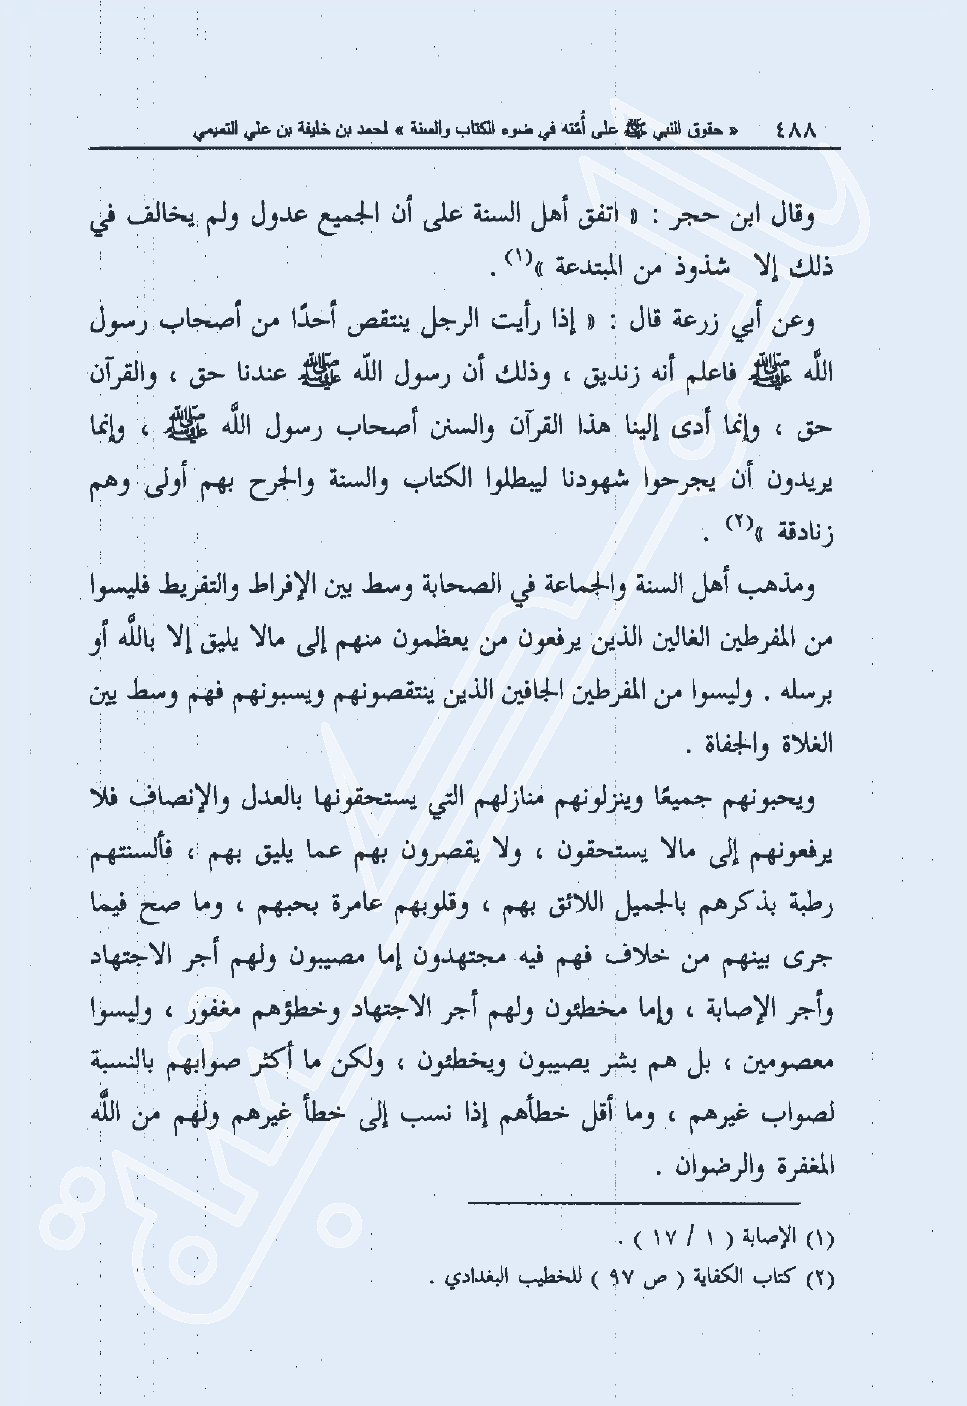 ٤٨٨ « حقوق النبي ﷺ على أُمّته في ضوء الكتاب والسنة » لمحمد بن خليفة بن علي التميمي
وقال ابن حجر : « اتفق أهل السنة على أن الجميع عدول ولم يخالف في
ذلك إلا شذوذ من المبتدعة »(١) .
وعن أبي زرعة قال : « إذا رأيت الرجل ينتقص أحدًا من أصحاب رسول
اللَّه ﷺ فاعلم أنه زنديق ، وذلك أن رسول اللَّه ﷺ عندنا حق ، والقرآن
حق ، وإنما أدى إلينا هذا القرآن والسنن أصحاب رسول اللَّه ﷺ ، وإنما
يريدون أن يجرحوا شهودنا ليبطلوا الكتاب والسنة والجرح بهم أولى وهم
زنادقة »(٢) .
ومذهب أهل السنة والجماعة في الصحابة وسط بين الإفراط والتفريط فليسوا
من المفرطين الغالين الذين يرفعون من يعظمون منهم إلى مالا يليق إلا باللَّه أو
برسله . وليسوا من المفرطين الجافين الذين ينتقصونهم ويسبونهم فهم وسط بين
الغلاة والجفاة .
ويحبونهم جميعًا وينزلونهم منازلهم التي يستحقونها بالعدل والإنصاف فلا
يرفعونهم إلى مالا يستحقون ، ولا يقصرون بهم عما يليق بهم ، فألسنتهم
رطبة بذكرهم بالجميل اللائق بهم ، وقلوبهم عامرة بحبهم ، وما صح فيما
جرى بينهم من خلاف فهم فيه مجتهدون إما مصيبون ولهم أجر الاجتهاد
وأجر الإصابة ، وإما مخطئون ولهم أجر الاجتهاد وخطؤهم مغفور ، وليسوا
معصومين ، بل هم بشر يصيبون ويخطئون ، ولكن ما أكثر صوابهم بالنسبة
لصواب غيرهم ، وما أقل خطأهم إذا نسب إلى خطأ غيرهم ولهم من اللَّه
المغفرة والرضوان .
(١) الإصابة ( ١ / ١٧ ) .
(٢) كتاب الكفاية ( ص ٩٧ ) للخطيب البغدادي .